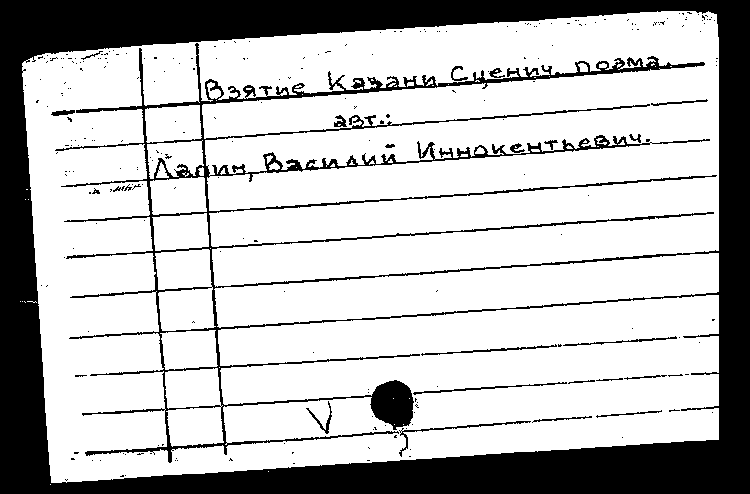 Взятие Казани Сценич. поэма.
авт.:
Лапин, Василий Иннокентьевич.
V